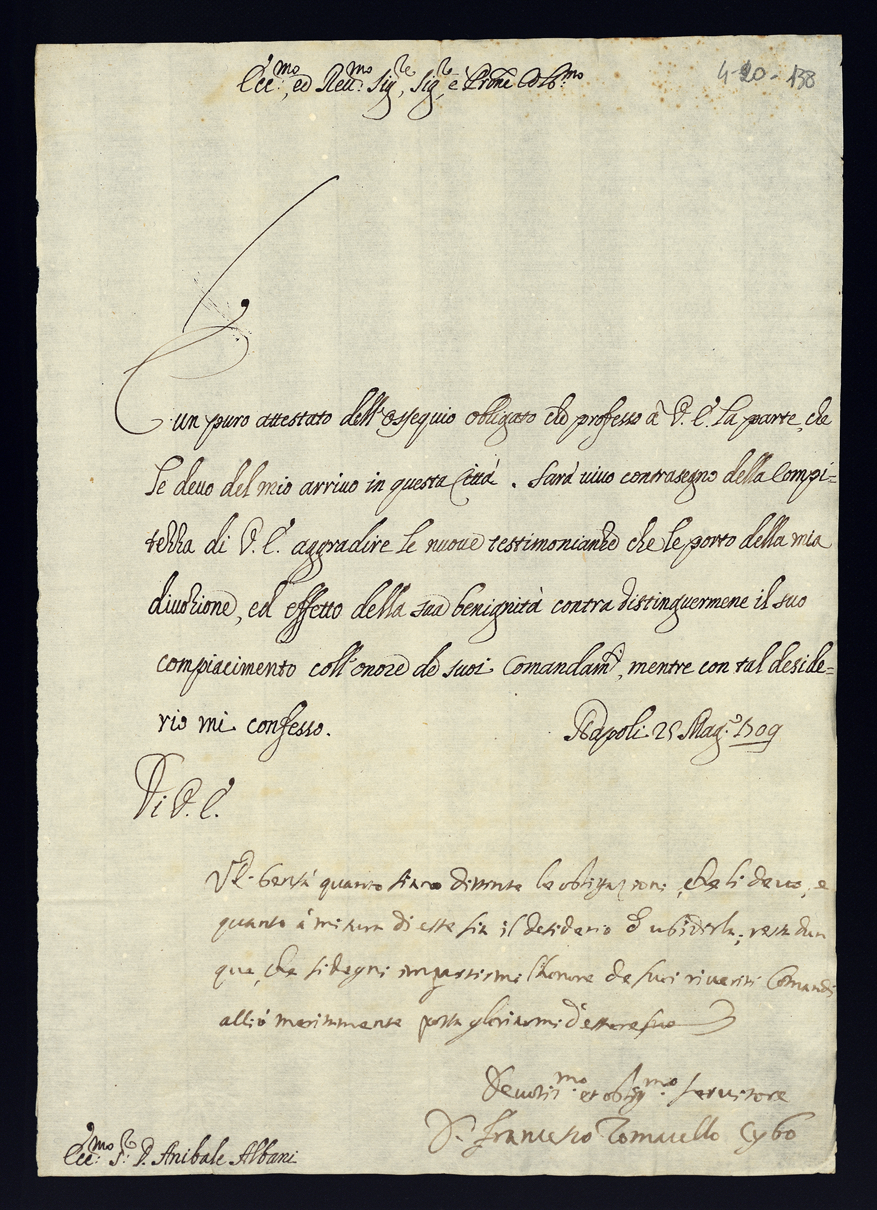 Ecc:mo, ed Reu:mo Sig.re, Sig.re e Prone Col:mo
4-20-138
È un puro attestato dell'ossequio obligato che professo à V. E. la parte, che
le deuo del mio arriuo in questa Città. Sarà uiuo contrasegno della Compi=
tezza di V. E. aggradire le nuoue testimonianze che le porto della mia
diuozione, ed effetto della sua benignità contradistinguermene il suo
compiacimento coll'onore de suoi Comandam.ti, mentre con tal deside=
rio mi confesso.
Napoli 25 Mag.o 1709
Di V. E.
V E quanto siano distinte le obligazioni, che li deuo, e
quanto à misura di esse sia il desiderio d'ubidirla; resta dun
que, che si degni impartirmi l'honore de suoi riueriti Comandi
acciò maggiormente possa gloriarmi d'essere suo
Deuotis.mo et oblig.mo seruitore
D. Francesco Tomacello Cybo
Ecc:mo S.r D. Anibale Albani